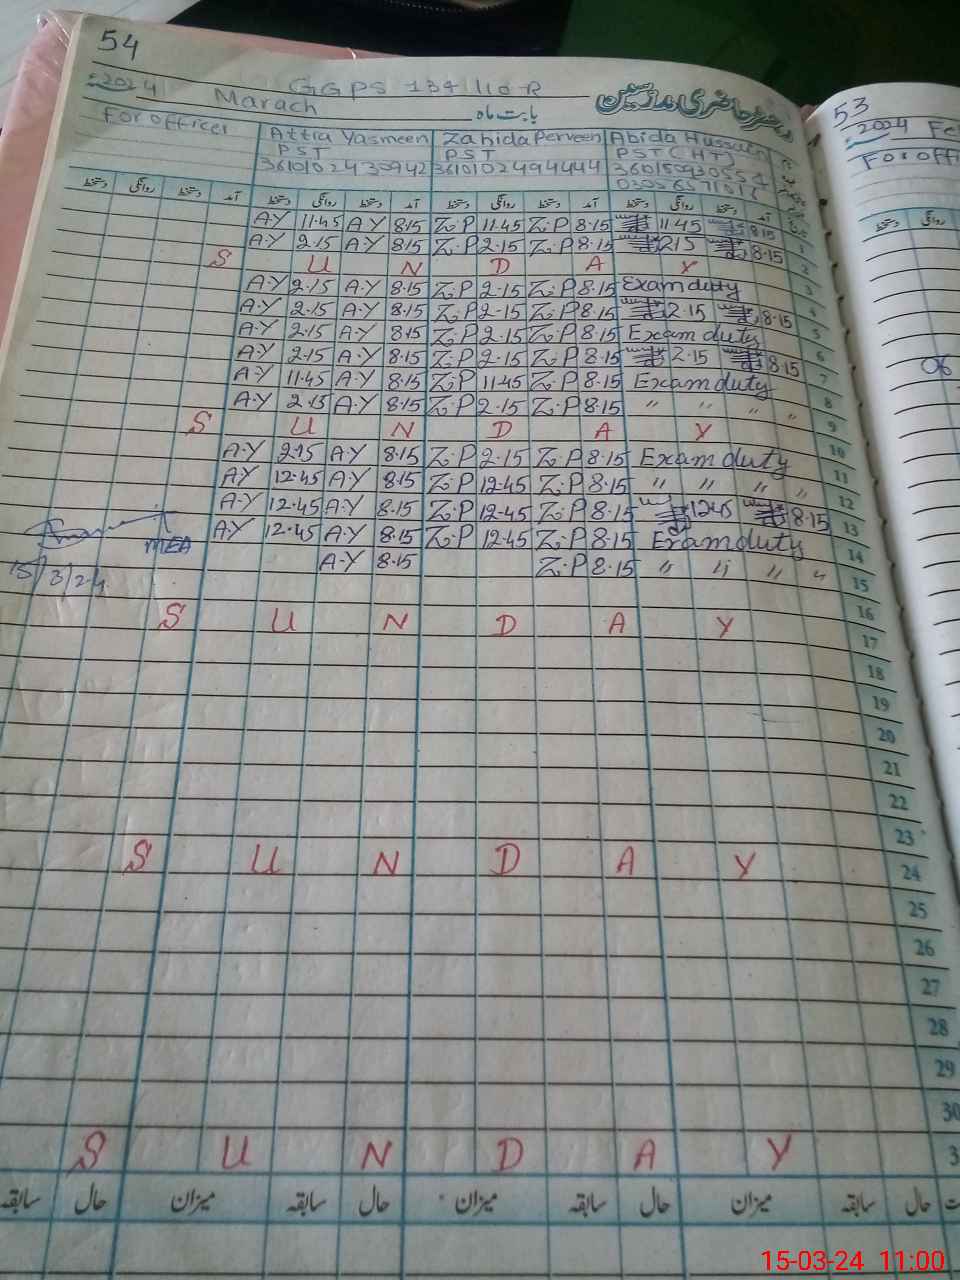 54
2024 GGPS 134/10R
Marach بابت ماہ
For officer Attia Yasmeen Zahida Perveen Abida Hussain
PST PST PST (HT)
3610102494444
دستخط روانگی دستخط آمد دستخط روانگی دستخط آمد دستخط روانگی دستخط آمد دستخط روانگی دستخط آمد
A.Y 11.45 A.Y 8.15 Z.P 11.45 Z.P 8.15 11.45 8.15 1
A.Y 2.15 A.Y 8.15 Z.P 2.15 Z.P 8.15 2.15 8.15 2
S U N D A Y 3
A.Y 2.15 A.Y 8.15 Z.P 2.15 Z.P 8.15 Exam duty 4
A.Y 2.15 A.Y 8.15 Z.P 2.15 Z.P 8.15 2.15 8.15 5
A.Y 2.15 A.Y 8.15 Z.P 2.15 Z.P 8.15 Exam duty 6
A.Y 2.15 A.Y 8.15 Z.P 2.15 Z.P 8.15 2.15 8.15 7
A.Y 11.45 A.Y 8.15 Z.P 11.45 Z.P 8.15 Exam duty 8
A.Y 2.15 A.Y 8.15 Z.P 2.15 Z.P 8.15 " " " " 9
S U N D A Y 10
A.Y 2.15 A.Y 8.15 Z.P 2.15 Z.P 8.15 Exam duty 11
A.Y 12.45 A.Y 8.15 Z.P 12.45 Z.P 8.15 " " " " 12
A.Y 12.45 A.Y 8.15 Z.P 12.45 Z.P 8.15 12.45 8.15 13
MEA A.Y 12.45 A.Y 8.15 Z.P 12.45 Z.P 8.15 Exam duty 14
15/3/24 A.Y 8.15 Z.P 8.15 " " " " 15
16
S U N D A Y 17
18
19
20
21
22
23
S U N D A Y 24
25
26
27
28
29
30
S U N D A Y 3
سابقہ حال میزان سابقہ حال میزان سابقہ حال میزان سابقہ حال
53
2024 Fe
For offi
دستخط روانگی
06
15-03-24 11:00